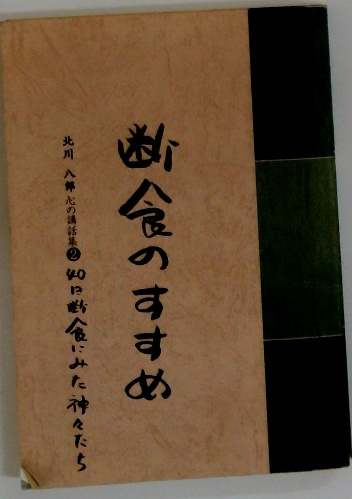 断食のすすめ
北川 八郎 心の講話集❷ 40日断食にみた神々たち